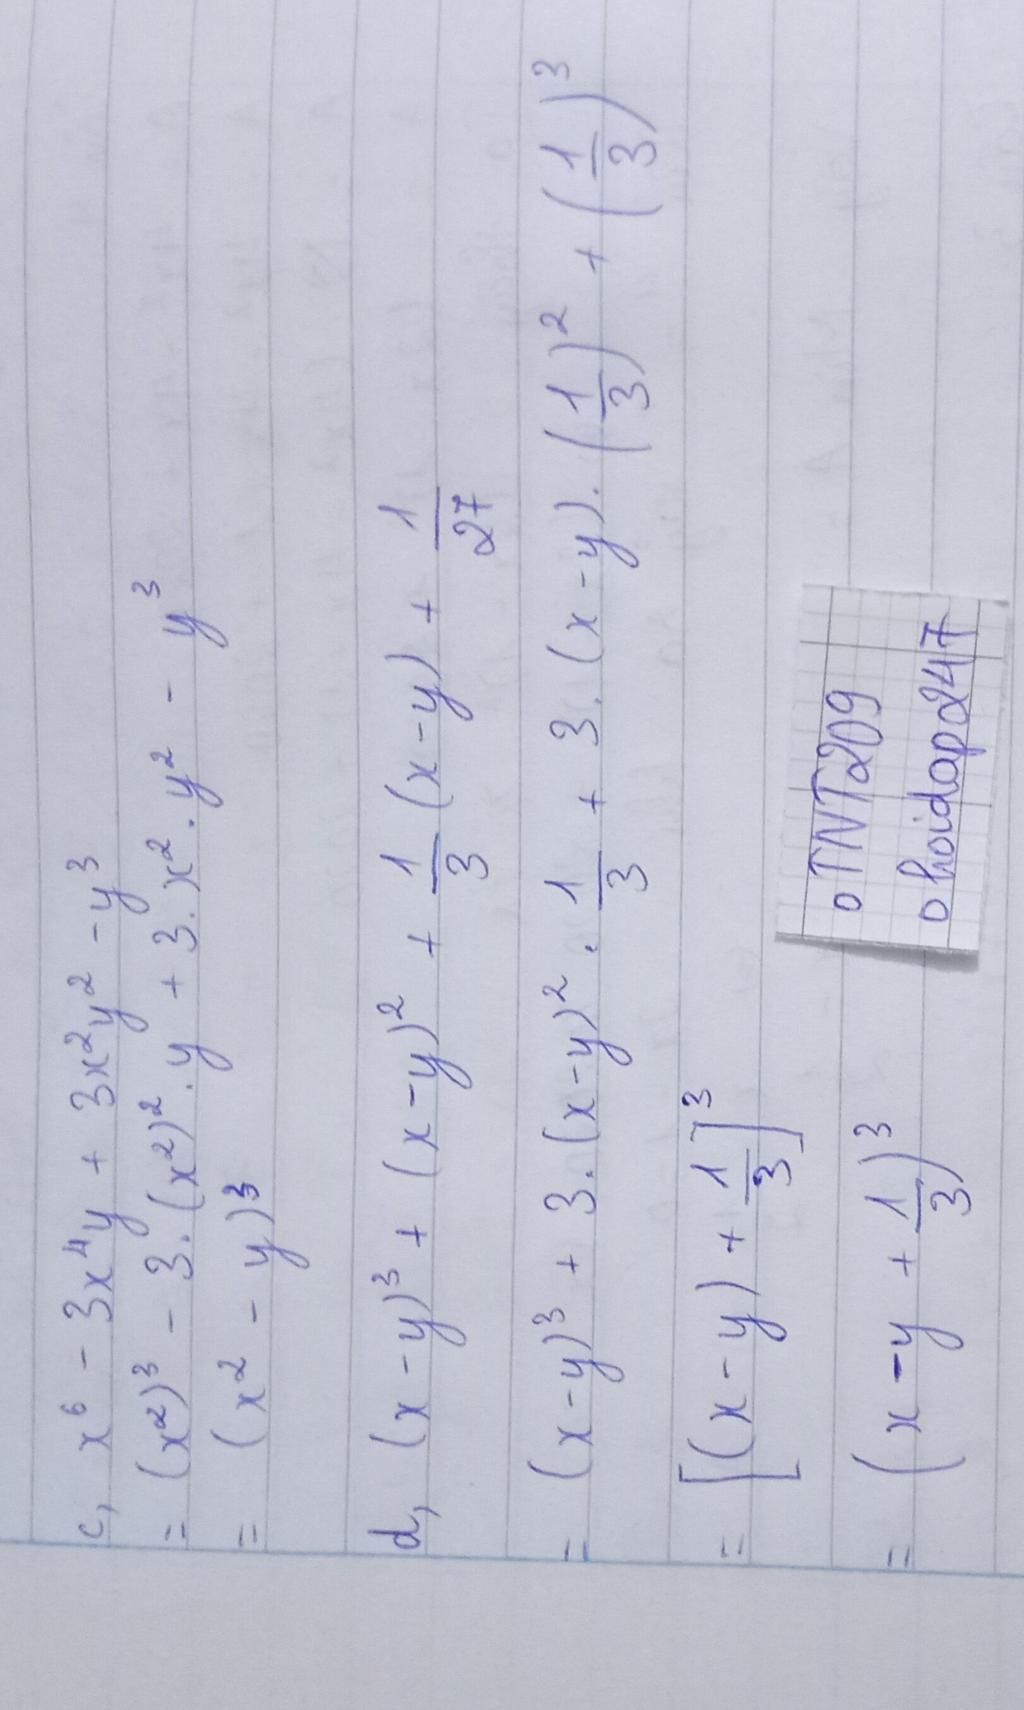 c, x⁶ - 3x⁴y + 3x²y² - y³
= (x²)³ - 3.(x²)².y + 3.x².y² - y³
= (x² - y)³
d, (x-y)³ + (x-y)² + 1/3 (x-y) + 1/27
= (x-y)³ + 3.(x-y)².1/3 + 3.(x-y).(1/3)² + (1/3)³
= [(x-y) + 1/3]³
= (x-y + 1/3)³
o TNT209
o hoidap247